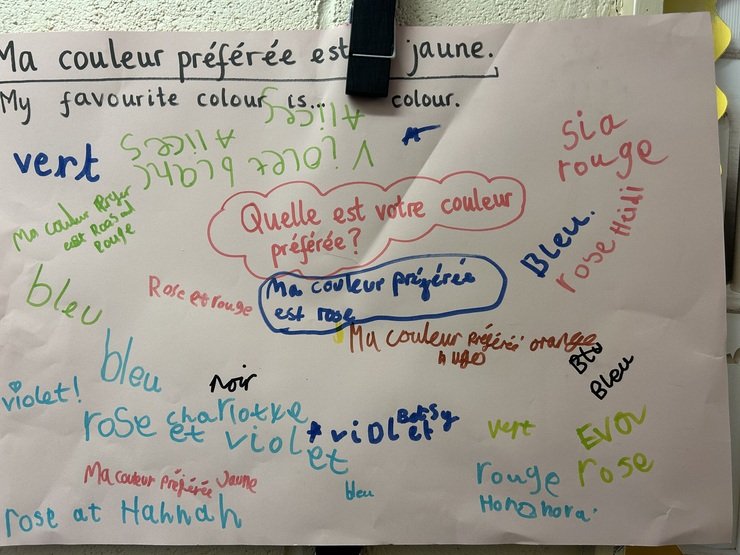 Ma couleur préférée est jaune.
My favourite colour is... colour.
Alices
Alices
violet blanc
vert
sia
rouge
Quelle est votre couleur
préférée?
Ma couleur
est
rouge
Bleu.
rose Heidi
bleu
Rose et rouge
Ma couleur préférée
est rose
Ma couleur préférée orange
Hugo
bleu
noir
Bleu
violet!
rose charlotte
et violet
et
Betsy
violet
vert
rose
Ma couleur préférée Jaune
bleu
rouge
rose at Hannah